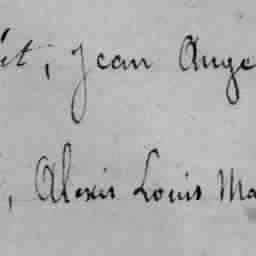 ét, Jean Ange
, Alexis Louis Ma